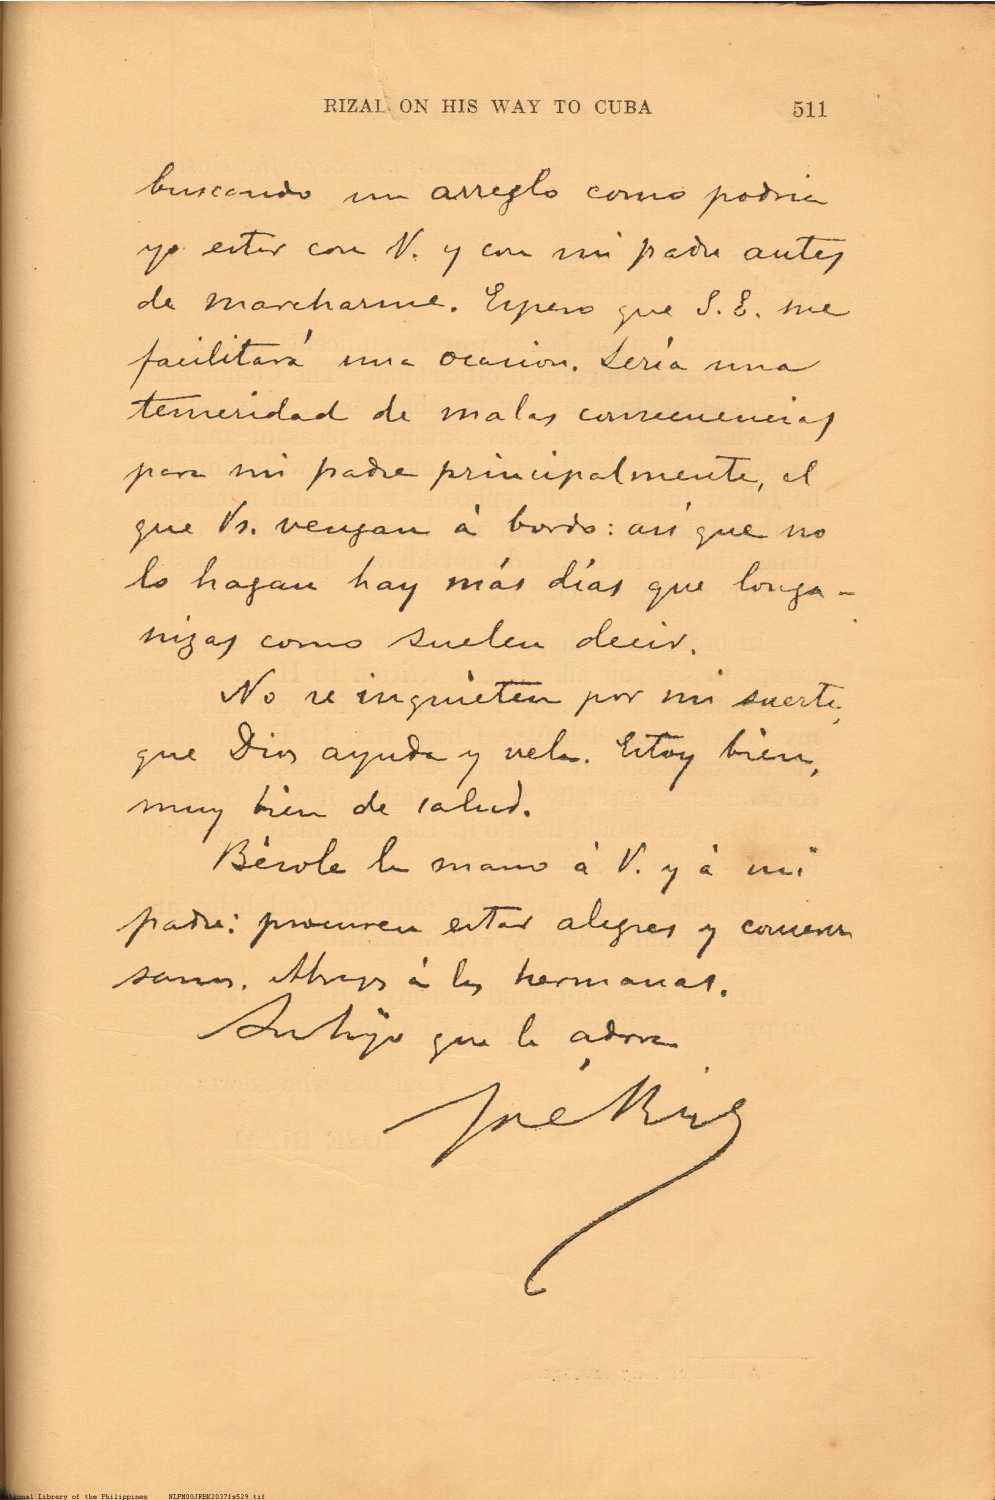 RIZAL ON HIS WAY TO CUBA 511
buscando un arreglo como podria
yo estar con V. y con mi padre antes
de marcharme. Espero que S. E. me
facilitará una ocasion. Sería una
temeridad de malas consecuencias
para mi padre principalmente, el
que Vs. vengan á bordo: asi que no
lo hagan hay más días que longa-
nizas como suelen decir.
No se inquieten por mi suerte,
que Dios ayuda y vela. Estoy bien,
muy bien de salud.
Bésole la mano á V. y á mi
padre: procuren estar alegres y conserven
sanos. Abrazos á las hermanas.
Su hijo que le adora
José Rizal
National Library of the Philippines NLPM00JRBK2037fs529.tif